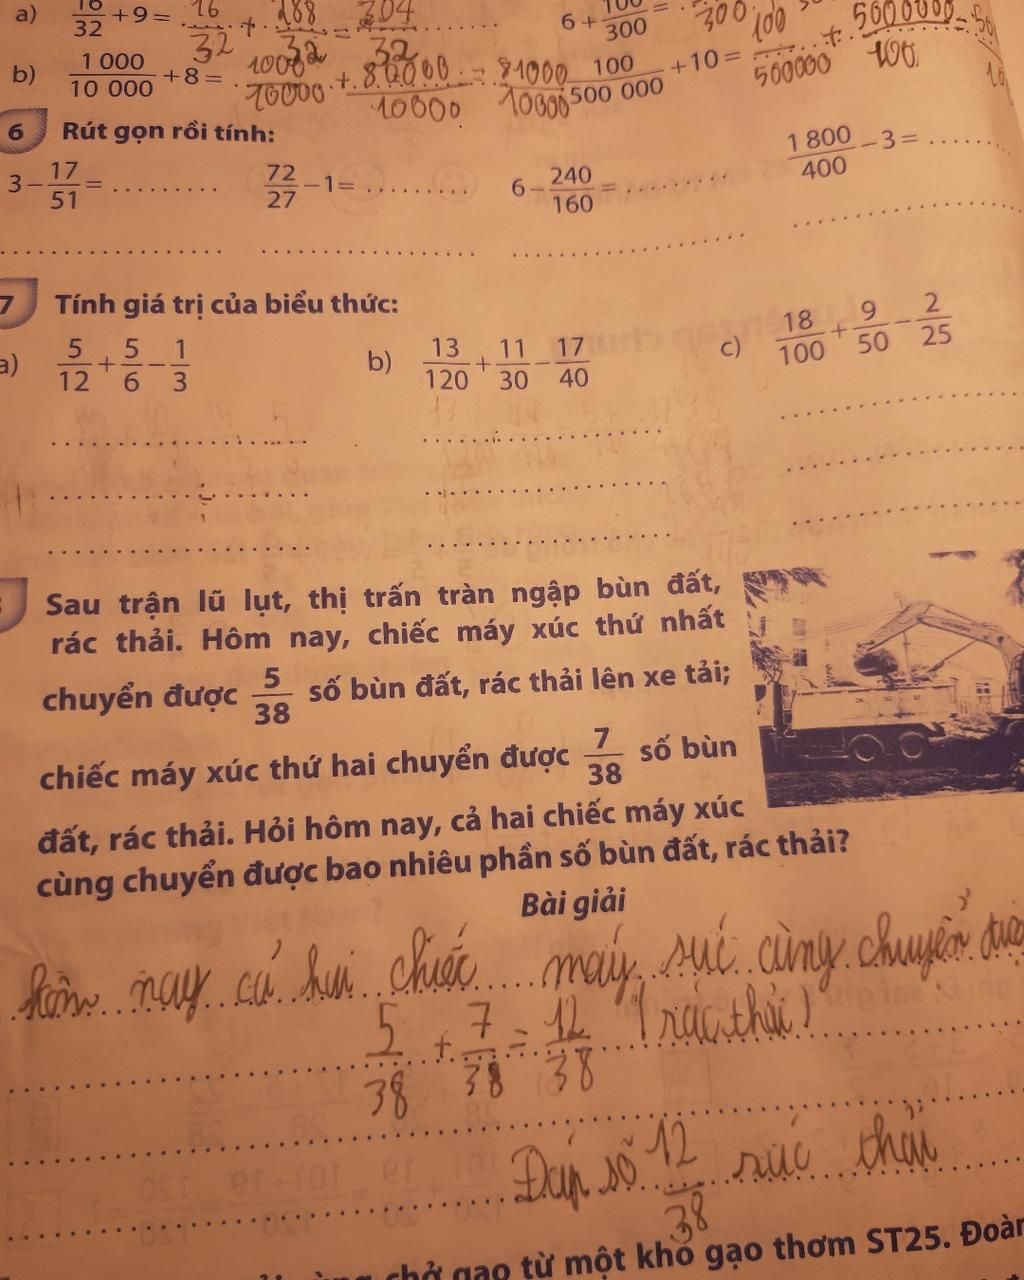 a) 16/32 + 9 = 16/32 + 288/32 = 304/32 6 + 100/300 =
b) 1 000/10 000 + 8 = 10000/10000 + 80000/10000 = 81000/10000 100/500 000 + 10 = 100/500000 + 5000000/100 =
6 Rút gọn rồi tính:
3 − 17/51 = ......... 72/27 − 1 = ......... 6 − 240/160 = ......... 1 800/400 − 3 = .........
7 Tính giá trị của biểu thức:
a) 5/12 + 5/6 − 1/3 b) 13/120 + 11/30 − 17/40 c) 18/100 + 9/50 − 2/25
Sau trận lũ lụt, thị trấn tràn ngập bùn đất,
rác thải. Hôm nay, chiếc máy xúc thứ nhất
chuyển được 5/38 số bùn đất, rác thải lên xe tải;
chiếc máy xúc thứ hai chuyển được 7/38 số bùn
đất, rác thải. Hỏi hôm nay, cả hai chiếc máy xúc
cùng chuyển được bao nhiêu phần số bùn đất, rác thải?
Bài giải
hôm nay cả hai chiếc máy súc cùng chuyển
5/38 + 7/38 = 12/38 (rác thải)
Đáp số 12/38 rác thải
chở gạo từ một kho gạo thơm ST25. Đoàn